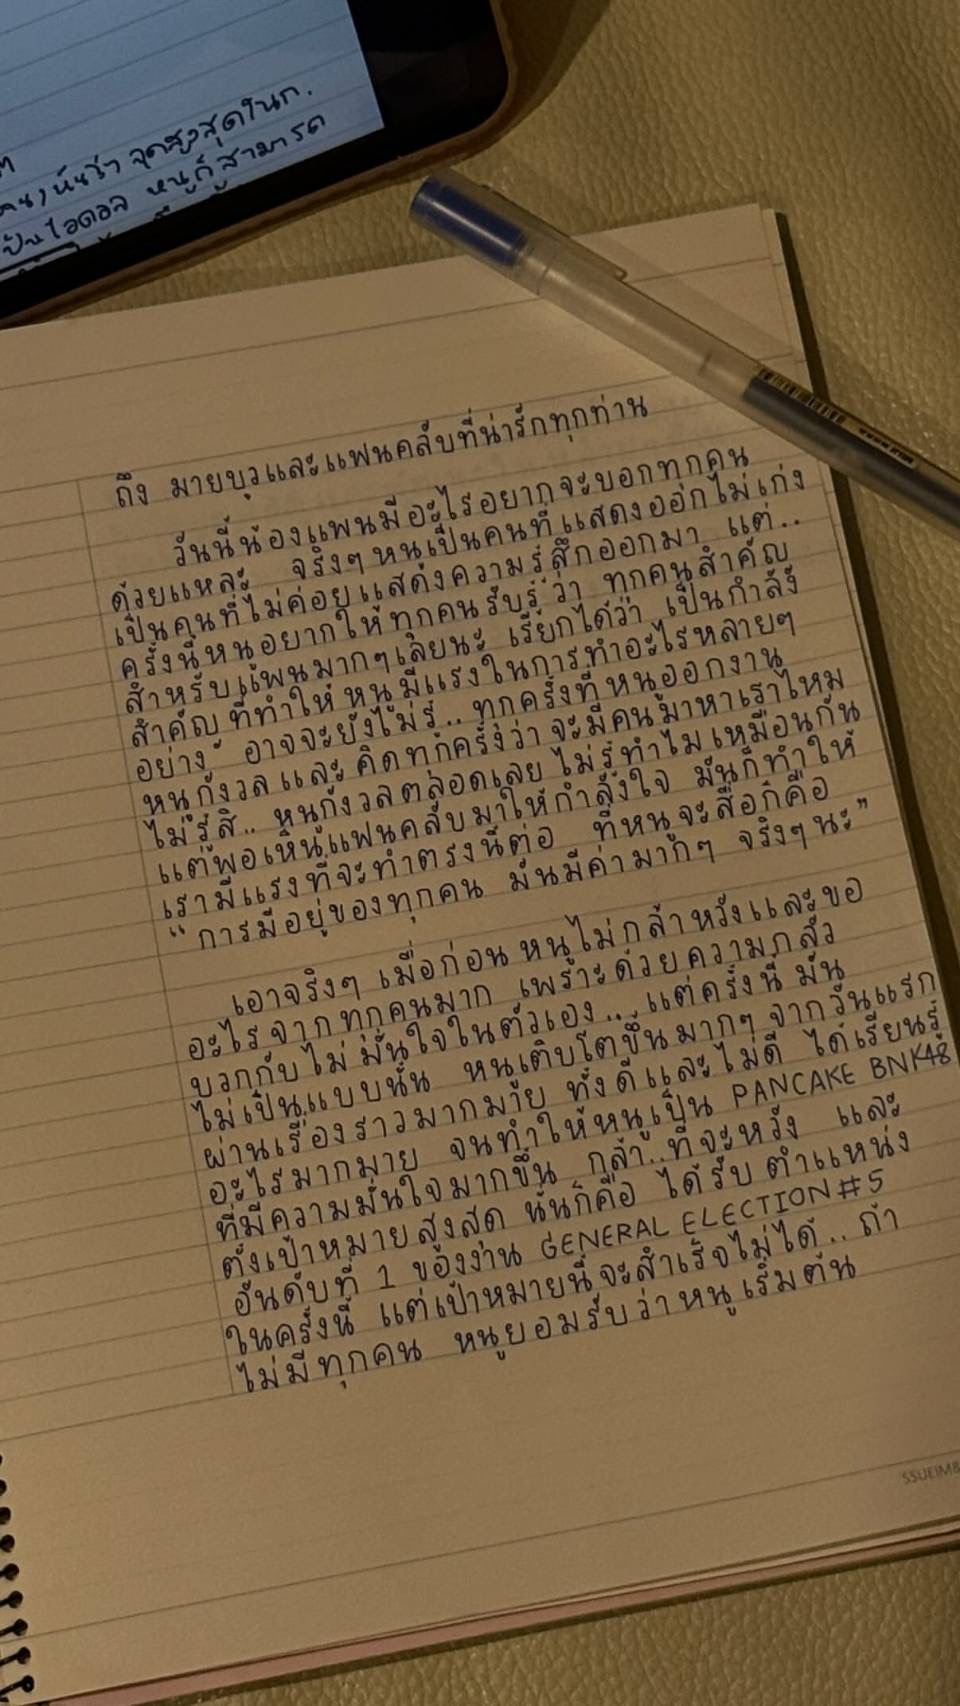 คน) หันว่า จุดสูงสุดในก.
ป็นไอดอล หนูก็สามารถ
ถึง มายบุวและแฟนคลับที่น่ารักทุกท่าน
วันนี้น้องแพนมีอะไรอยากจะบอกทุกคน
ด้วยแหละ จริงๆหนูเป็นคนที่แสดงออกไม่เก่ง
เป็นคนที่ไม่ค่อยแสดงความรู้สึกออกมา แต่..
ครั้งนี้หนูอยากให้ทุกคนรับรู้ว่า ทุกคนสำคัญ
สำหรับแพนมากๆเลยนะ เรียกได้ว่า เป็นกำลัง
สำคัญ ที่ทำให้หนูมีแรงในการทำอะไรหลายๆ
อย่าง อาจจะยังไม่รู้.. ทุกครั้งที่หนูออกงาน
หนูกังวลและคิดทุกครั้งว่าจะมีคนมาหาเราไหม
ไม่รู้สิ.. หนูกังวลตลอดเลย ไม่รู้ทำไมเหมือนกัน
แต่พอเห็นแฟนคลับมาให้กำลังใจ มันก็ทำให้
เรามีแรงที่จะทำตรงนี้ต่อ ที่หนูจะสื่อก็คือ
“ การมีอยู่ของทุกคน มันมีค่ามากๆ จริงๆนะ”
เอาจริงๆ เมื่อก่อน หนูไม่กล้าหวังและขอ
อะไรจากทุกคนมาก เพราะด้วยความกลัว
บวกกับไม่มั่นใจในตัวเอง.. แต่ครั้งนี้ มัน
ไม่เป็นแบบนั้น หนูเติบโตขึ้นมากๆ จากวันแรก
ผ่านเรื่องราวมากมาย ทั้งดีและไม่ดี ได้เรียนรู้
อะไรมากมาย จนทำให้หนูเป็น PANCAKE BNK48
ที่มีความมั่นใจมากขึ้น กล้า..ที่จะหวัง และ
ตั้งเป้าหมายสูงสุด นั่นก็คือ ได้รับ ตำแหน่ง
อันดับที่ 1 ของงาน GENERAL ELECTION#5
ในครั้งนี้ แต่เป้าหมายนี้จะสำเร็จไม่ได้.. ถ้า
ไม่มีทุกคน หนูยอมรับว่าหนูเริ่มต้น